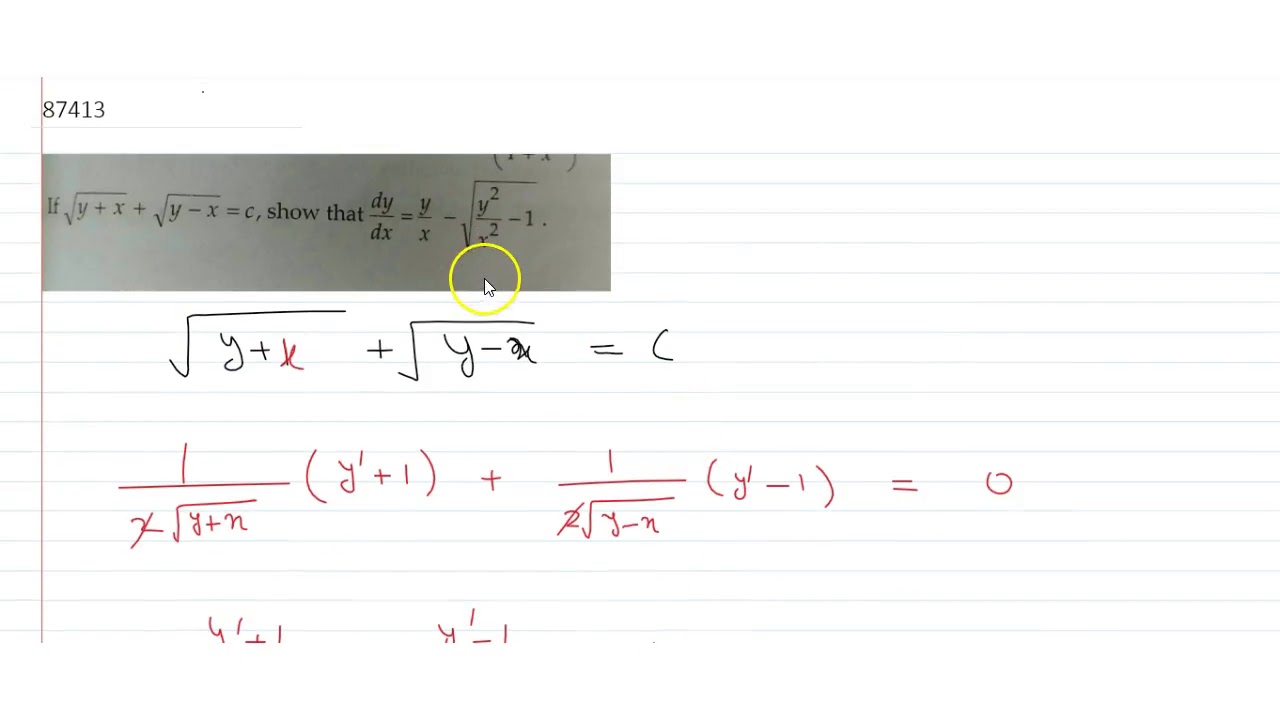 87413
If √(y + x) + √(y − x) = c, show that dy/dx = y/x − √(y²/x² − 1) .
√(y+x) + √(y−x) = c
1/(2√(y+x)) (y′+1) + 1/(2√(y−x)) (y′−1) = 0
y′+1 y′−1